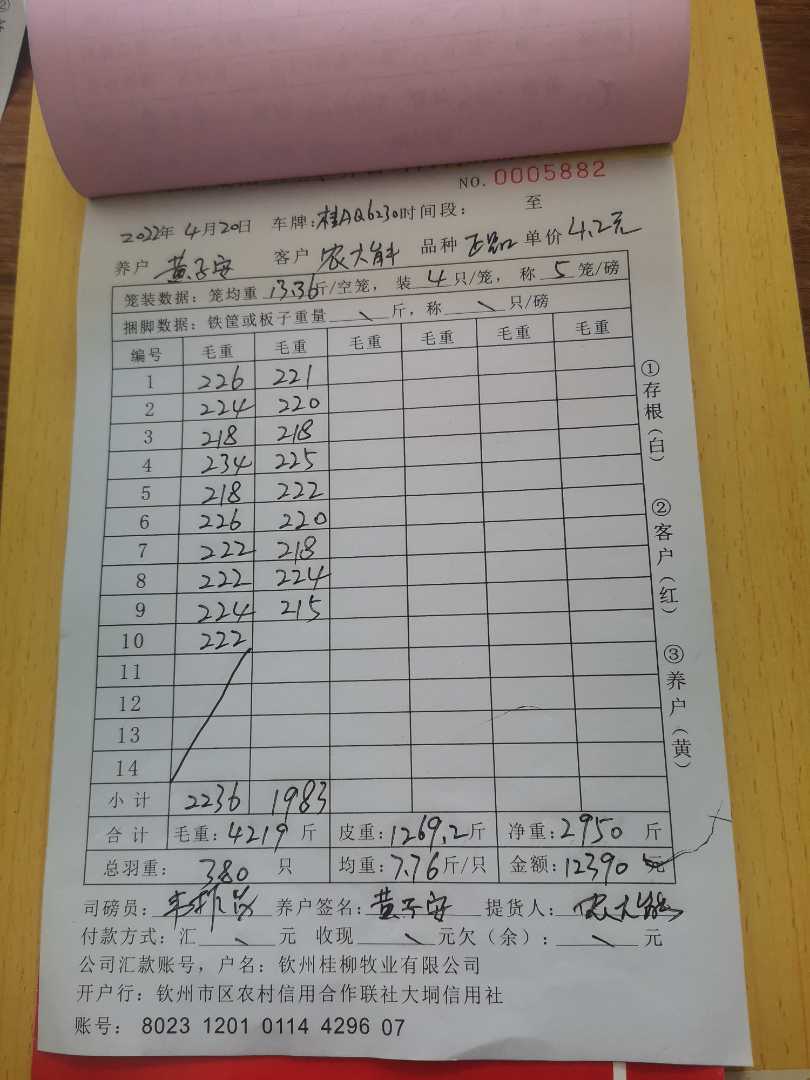 NO. 0005882
2022年 4月20日 车牌:桂AQ6230时间段: 至
养户 黄子安 客户 农大能 品种 正品 单价4.2元
笼装数据:笼均重 13.36斤/空笼,装 4 只/笼,称 5 笼/磅
捆脚数据:铁筐或板子重量 \ 斤,称 \ 只/磅
编号 毛重 毛重 毛重 毛重 毛重 毛重
1 226 221
2 224 220
3 218 218
4 234 225
5 218 222
6 226 220
7 222 218
8 222 224
9 224 215
10 222
11
12
13
14
小计 2236 1983
合计 毛重:4219 斤 皮重:1269.2斤 净重:2950 斤
总羽重: 380 只 均重:7.76斤/只 金额:12390 元
司磅员: 养户签名:黄子安 提货人:农大能
付款方式:汇 \ 元 收现 \ 元欠(余): \ 元
公司汇款账号,户名:钦州桂柳牧业有限公司
开户行:钦州市区农村信用合作联社大垌信用社
账号: 8023 1201 0114 4296 07
①存根(白)
②客户(红)
③养户(黄)